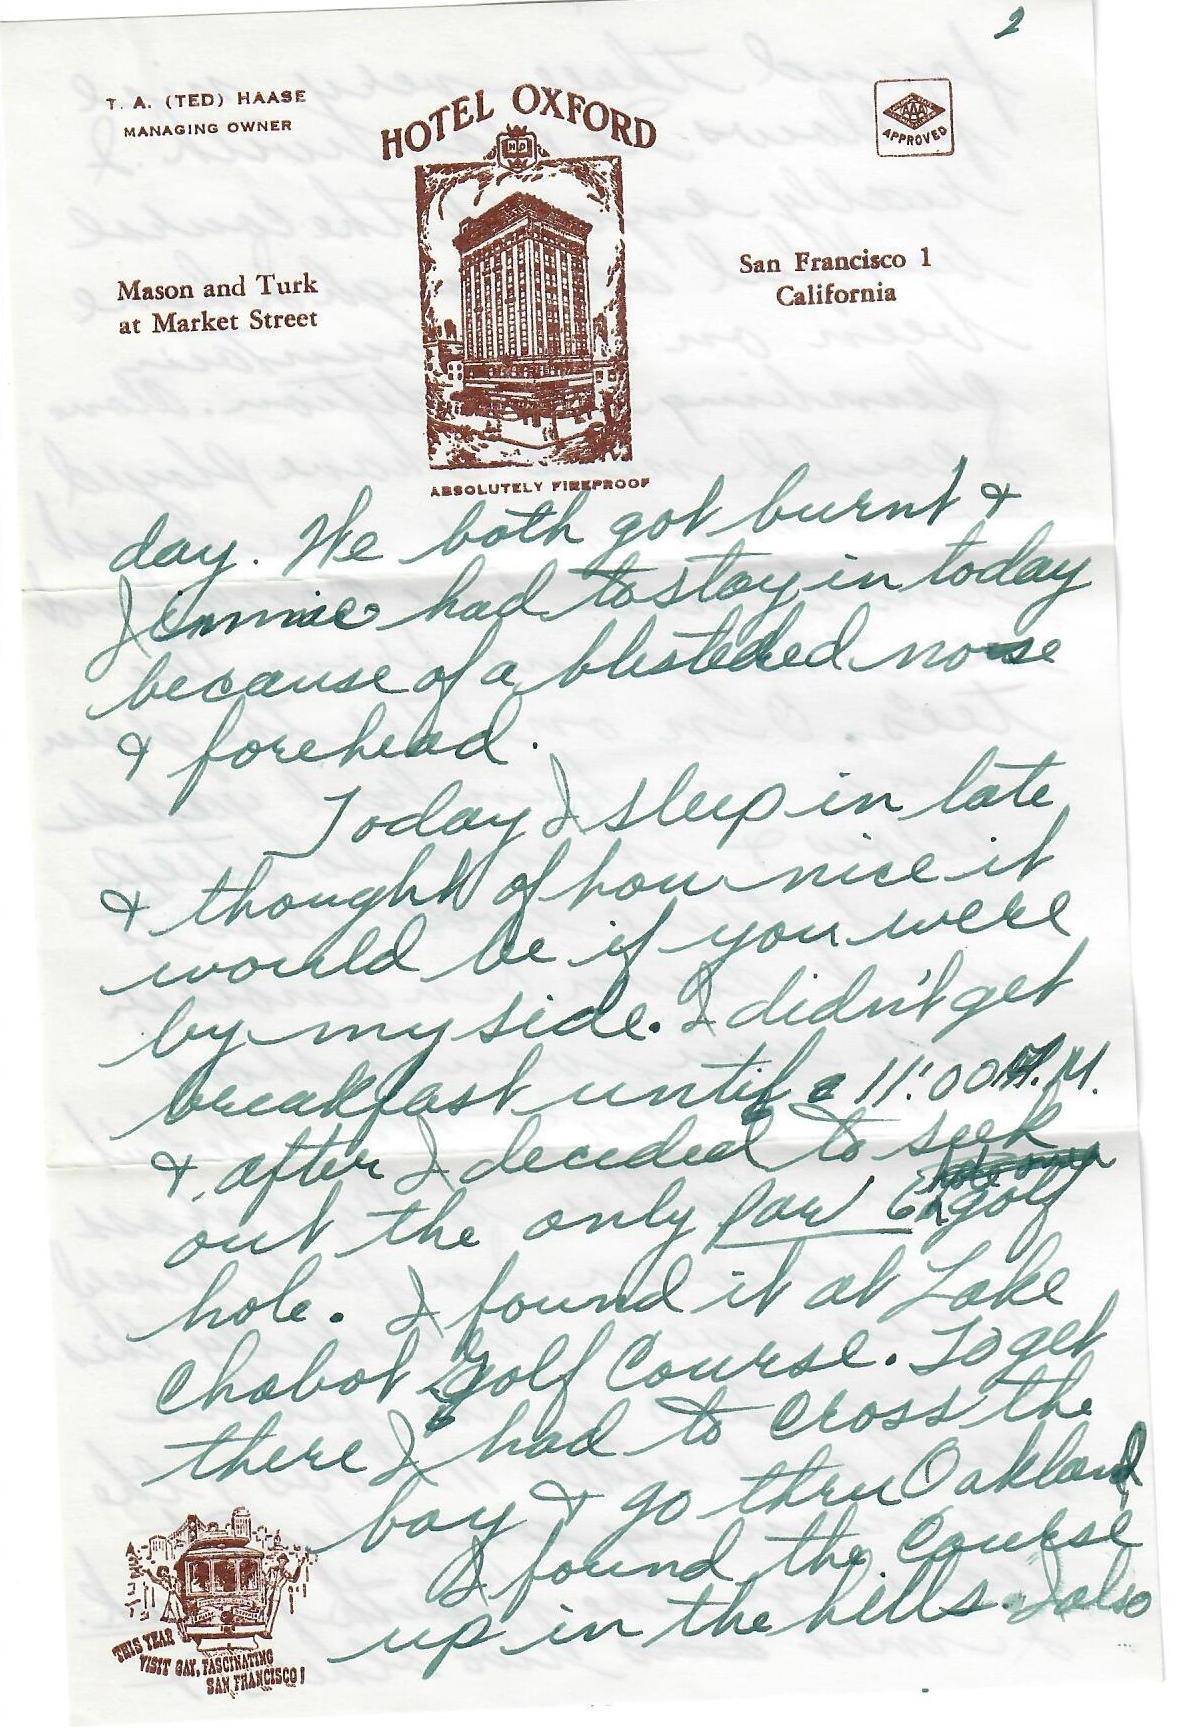 2
T. A. (TED) HAASE
MANAGING OWNER
HOTEL OXFORD
AAA
APPROVED
Mason and Turk
at Market Street
San Francisco 1
California
ABSOLUTELY FIREPROOF
day. We both got burnt &
Jimmie had to stay in today
because of a blistered nose
& forehead.
Today I sleep in late
& thought of how nice it
would be if you were
by my side. I didn't get
breakfast until 11:00 A.M.
& after I decided to seek
out the only par 6 golf
hole. I found it at Lake
Chabot Golf Course. To get
there I had to cross the
bay & go thru Oakland
I found the course
up in the hills. I also
THIS YEAR
VISIT GAY, FASCINATING
SAN FRANCISCO!